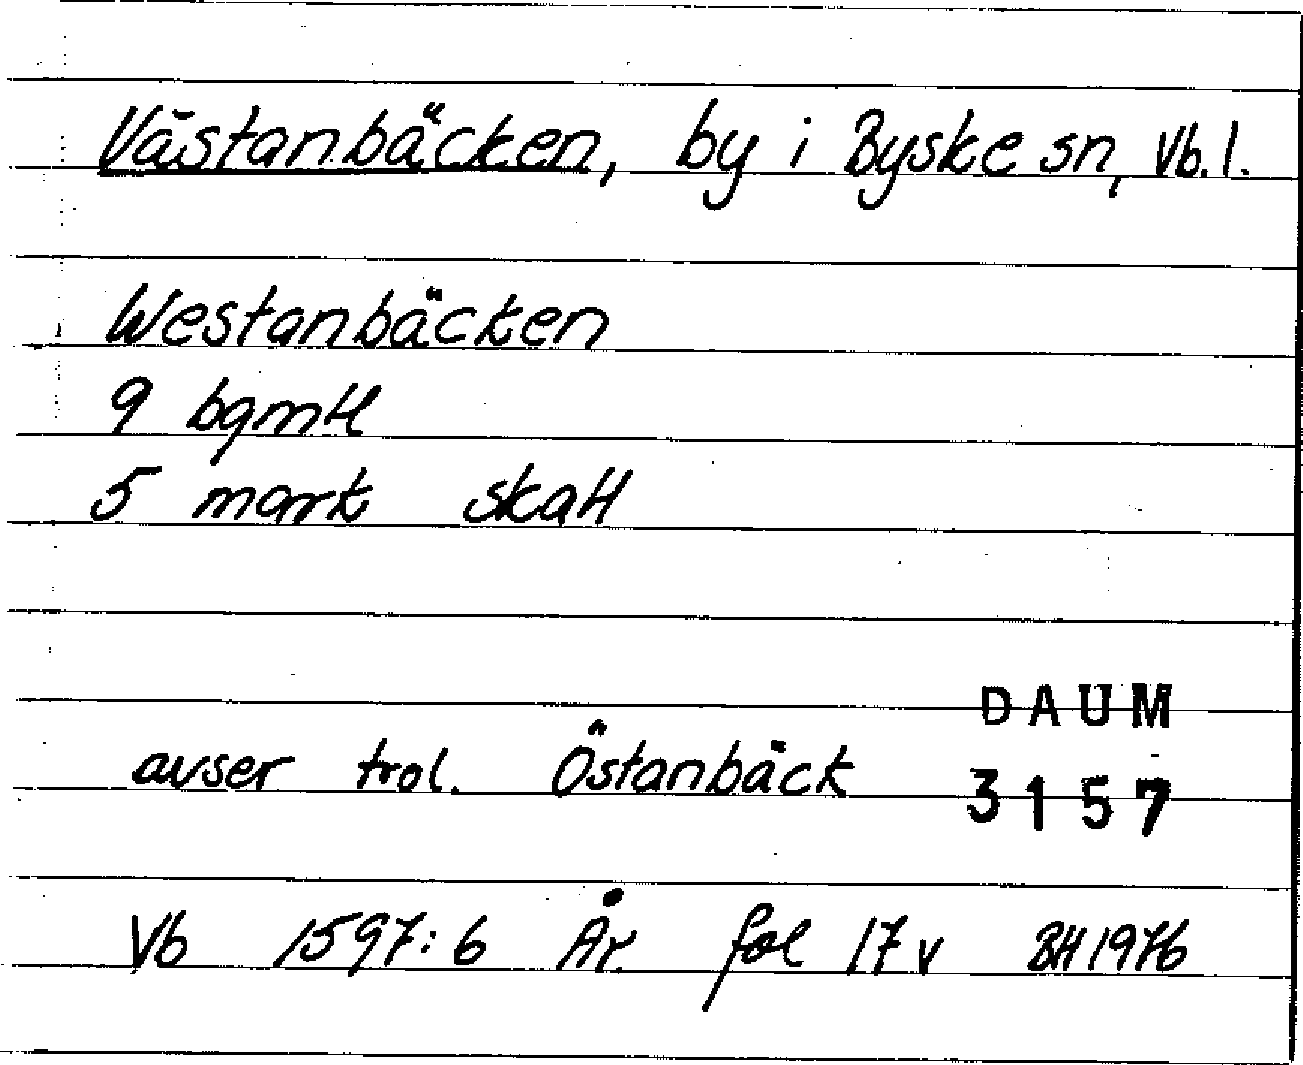 Västanbäcken, by i Byske sn, Vb. l.
Westanbäcken
9 bgmtl
5 mark skatt
DAUM
avser trol. Östanbäck
3157
Vb 1597:6 År. fol 17 v BH 1976